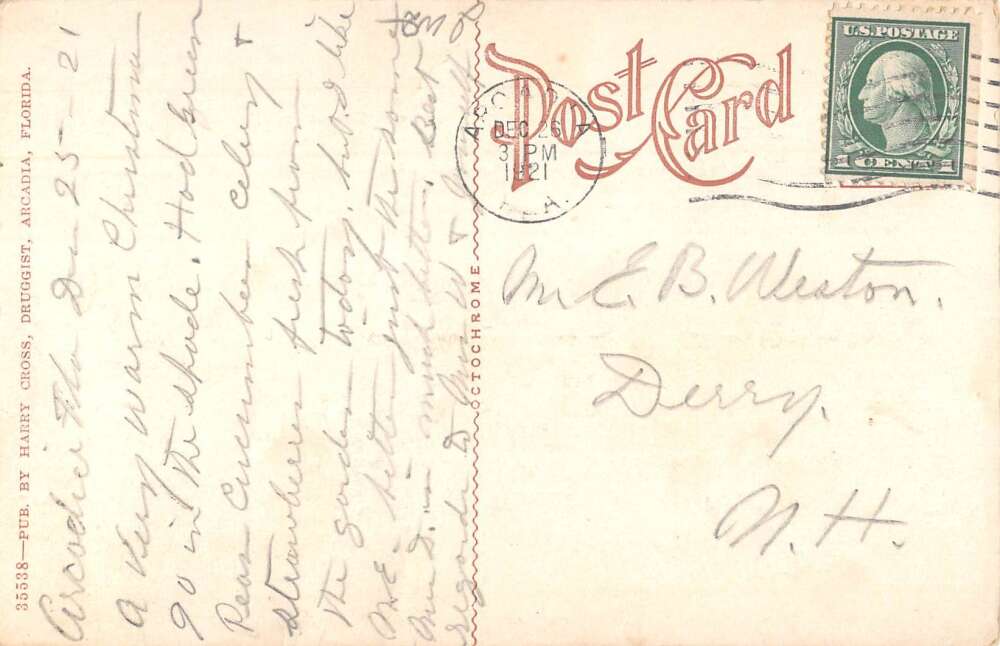 35538—PUB. BY HARRY CROSS, DRUGGIST, ARCADIA, FLORIDA.
Arcadia Fla De 25-21
A very warm Christmas
90 in the shade. Had green
Peas Cucumbers celery +
strawberes fresh from
the garden today. wod like
just the same
much better. Best
regards to
OCTOCHROME
Post Card
ARCADIA
DEC 26
3 PM
1921
FLA.
U.S. POSTAGE
1 CENT 1
Mr E. B. Weston.
Derry.
N. H.